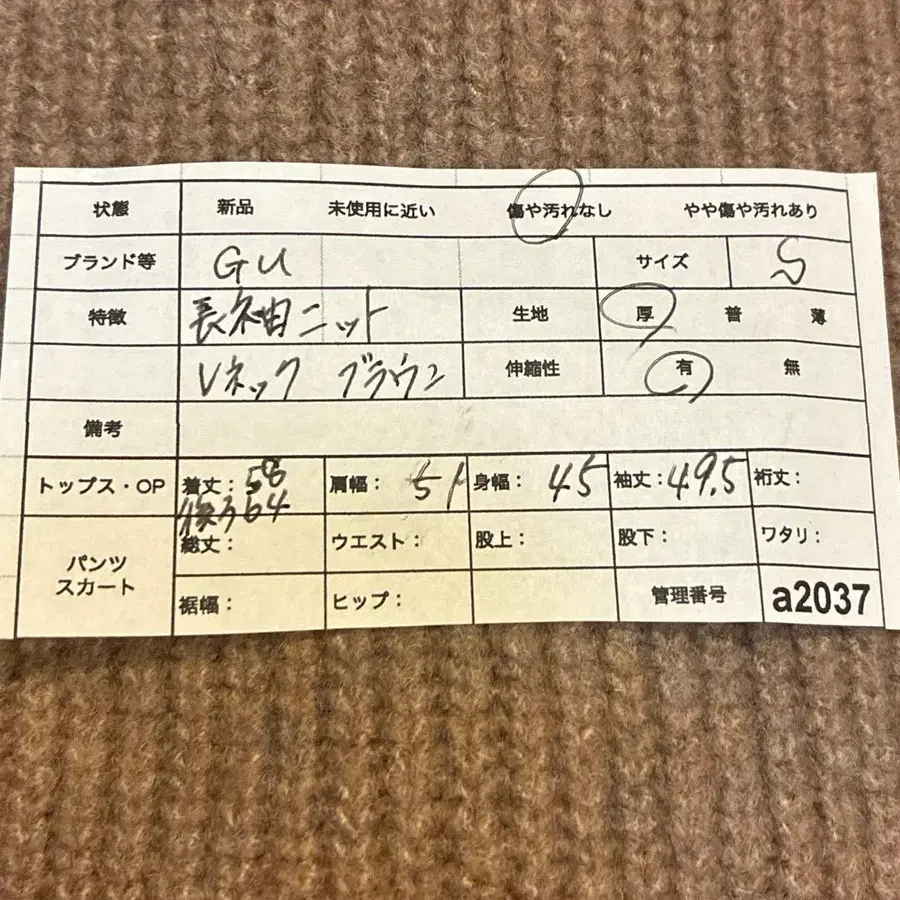 状態 新品 未使用に近い 傷や汚れなし やや傷や汚れあり
ブランド等 GU サイズ S
特徴 長袖ニット 生地 厚 普 薄
Vネック ブラウン 伸縮性 有 無
備考
トップス・OP 着丈：58 肩幅：51 身幅：45 袖丈：49.5 裄丈：
後ろ64
パンツ スカート 総丈： ウエスト： 股上： 股下： ワタリ：
裾幅： ヒップ： 管理番号 a2037